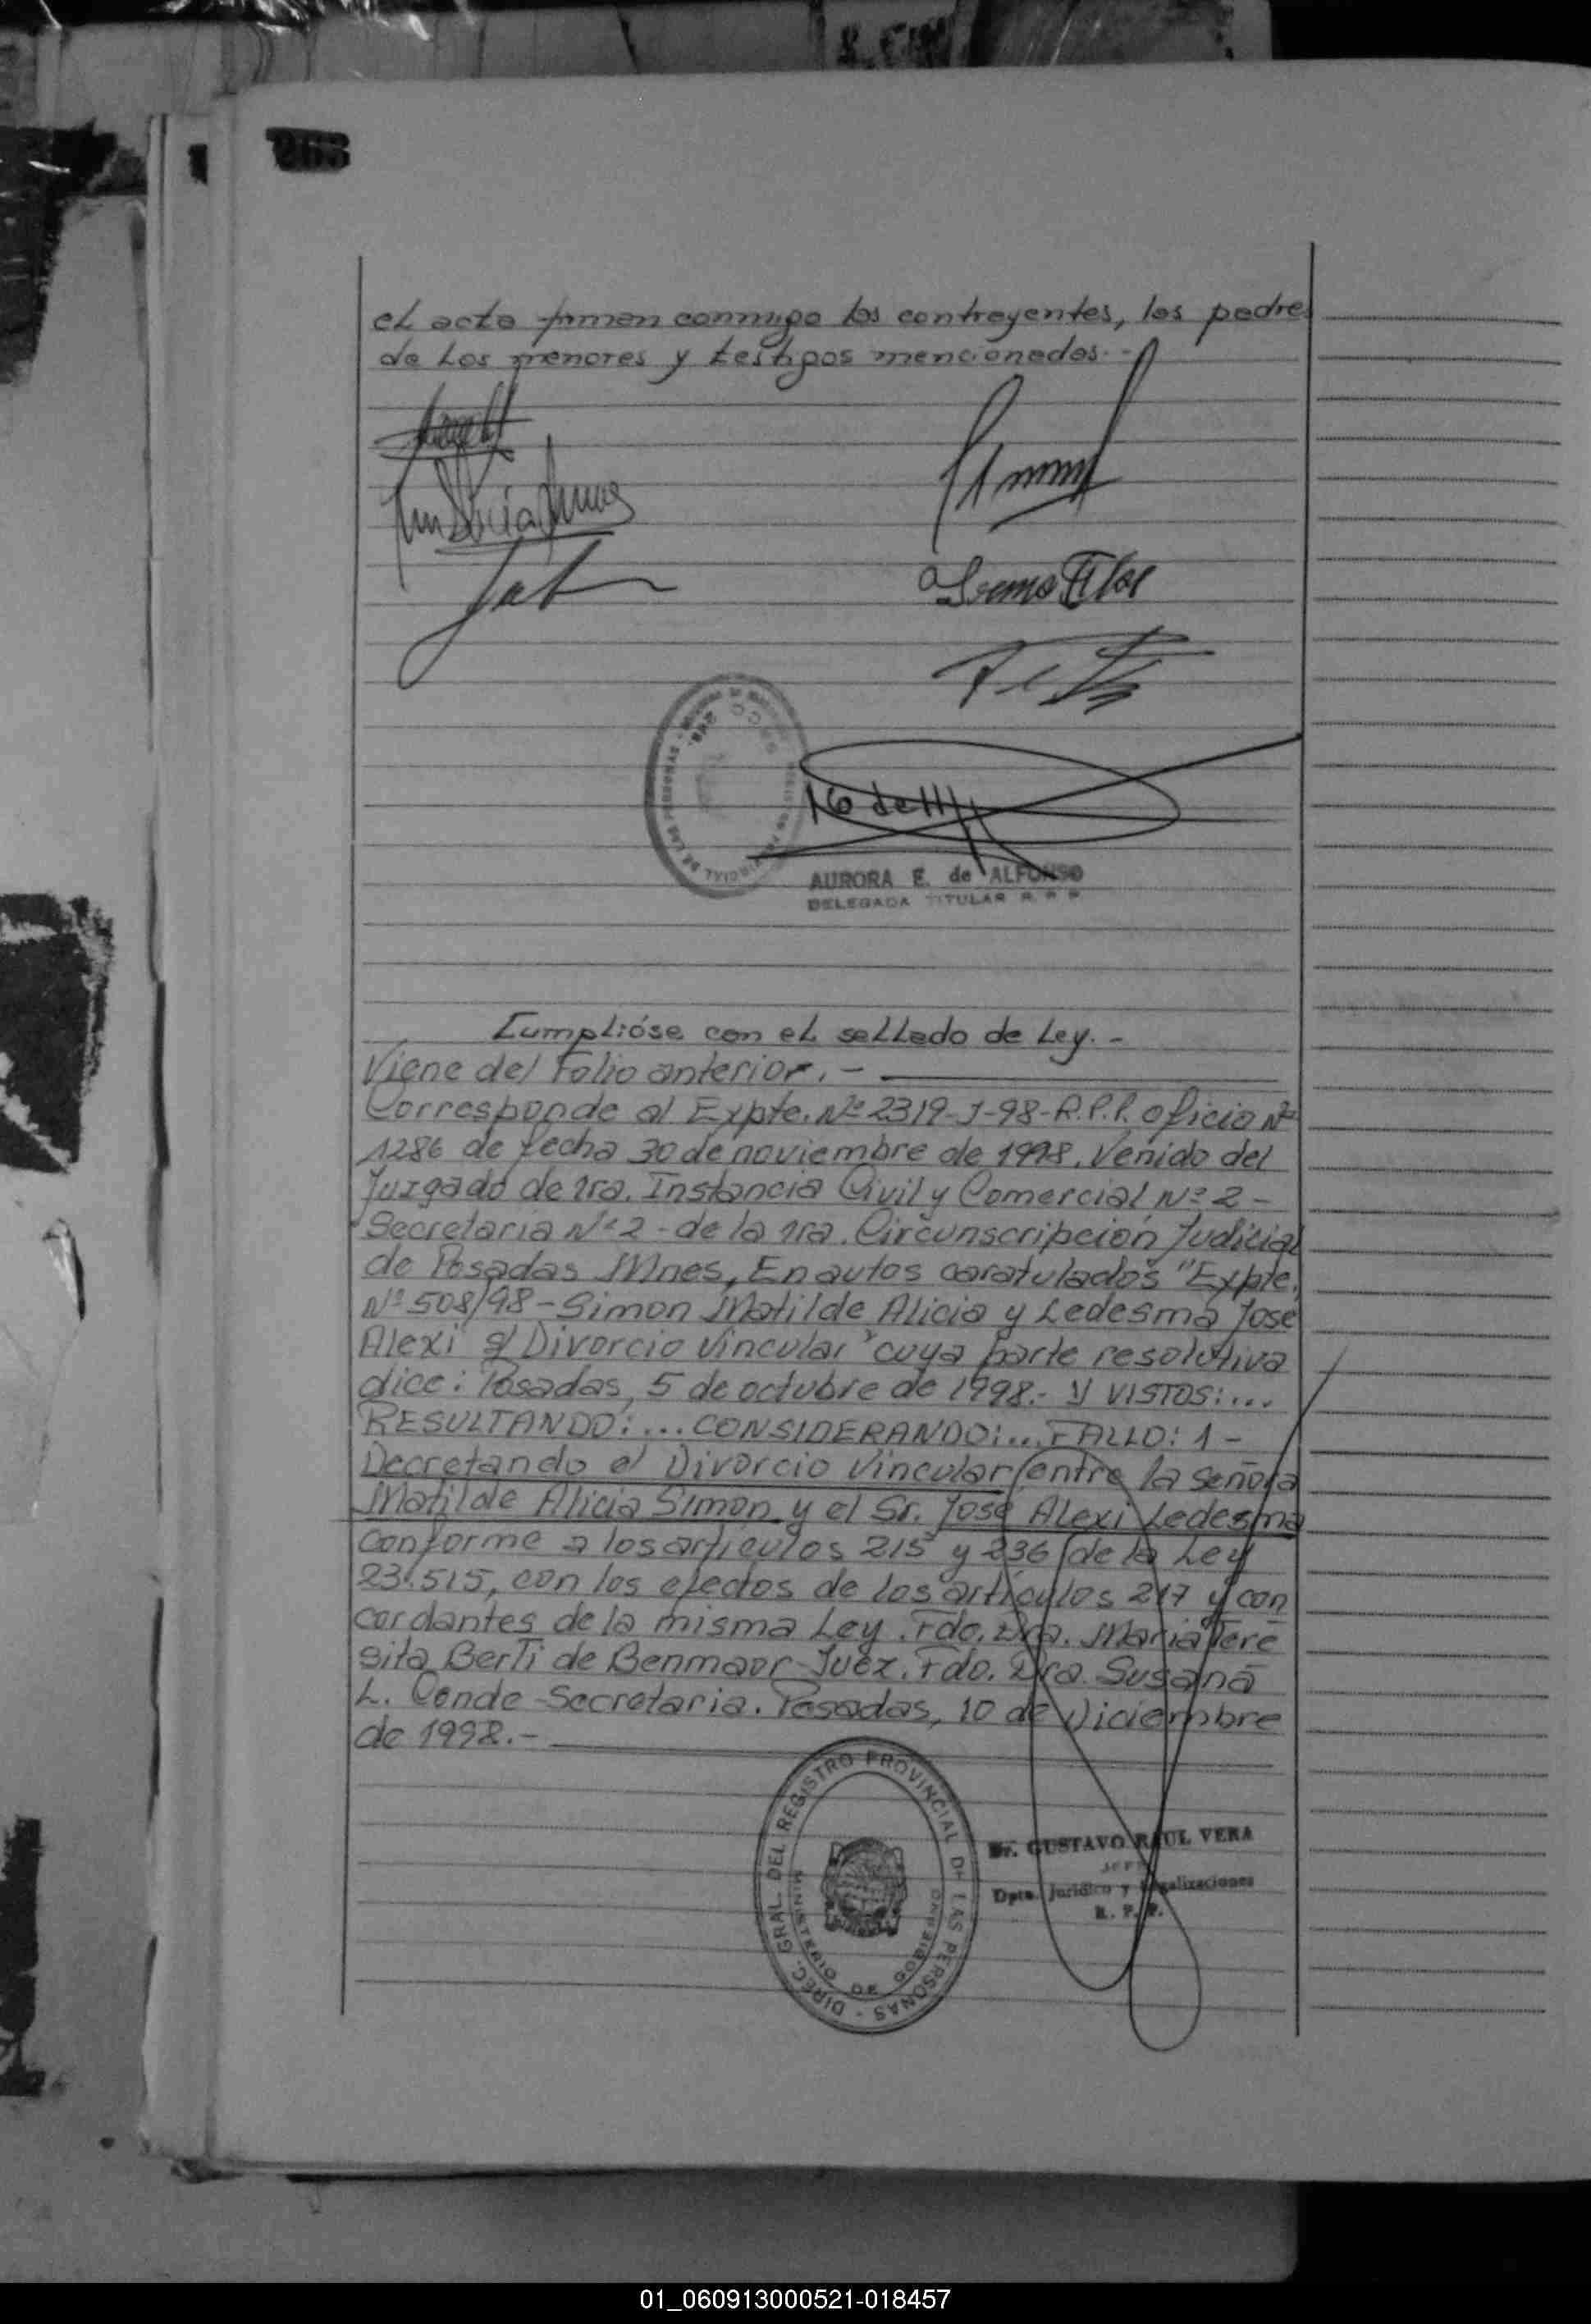 el acto firman conmigo los contrayentes, los padres
de los menores y testigos mencionados.-
AURORA E. de ALFONSO
DELEGADA TITULAR R. P. P.
Cumplióse con el sellado de Ley.-
Viene del Folio anterior.-
Corresponde al Expte. Nº 2319-J-98-R.P.P. oficio Nº
1286 de fecha 30 de noviembre de 1998. Venido del
Juzgado de 1ra. Instancia Civil y Comercial Nº 2-
Secretaria Nº 2 - de la 1ra. Circunscripción Judicial
de Posadas Mnes, En autos caratulados "Expte.
Nº 508/98-Simon Matilde Alicia y Ledesma José
Alexi s/ Divorcio Vincular" cuya parte resolutiva
dice: Posadas, 5 de octubre de 1998.- Y VISTOS:...
RESULTANDO:... CONSIDERANDO:... FALLO: 1-
Decretando el Divorcio Vincular entre la señora
Matilde Alicia Simon y el Sr. José Alexi Ledesma
conforme a los artículos 215 y 236 de la Ley
23.515, con los efectos de los artículos 217 y con
cordantes de la misma Ley. Fdo. Dra. Maria Tere
sita Berti de Benmaor-Juez. Fdo. Dra. Susana
L. Conde-Secretaria. Posadas, 10 de Diciembre
de 1998.-
DIREC. GRAL. DEL REGISTRO PROVINCIAL DE LAS PERSONAS -
MINISTERIO DE GOBIERNO
Dr. GUSTAVO RAUL VERA
JEFE
Dpto. Jurídico y Legalizaciones
R. P. P.
01_060913000521-018457